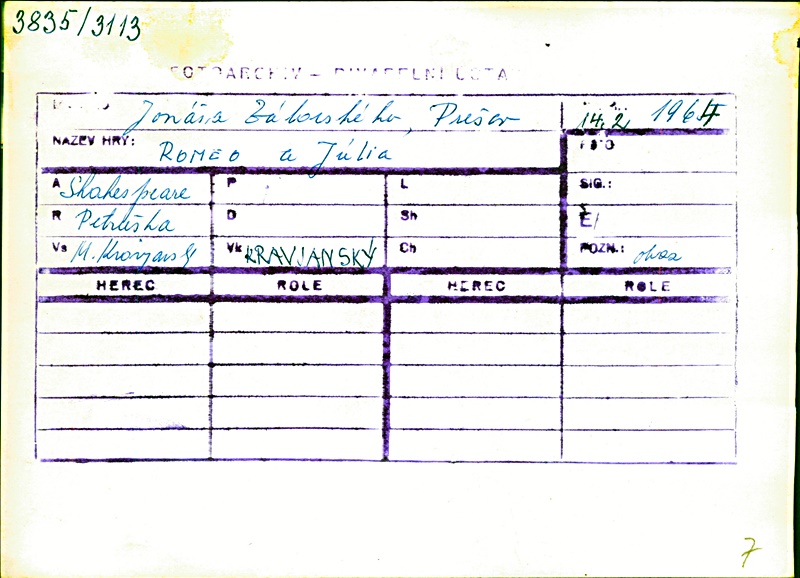 3835/3113
FOTOARCHIV – DIVADELNÍ ÚSTAV
Jonáša Záborského, Prešov 14.2. 1964
NÁZEV HRY: ROMEO a Júlia FOTO
A Shakespeare P L SIG.:
R Petruška D Sh Č/
Vs M. Kravjanský Vk KRAVJANSKÝ Ch POZN.:
HEREC ROLE HEREC ROLE
7